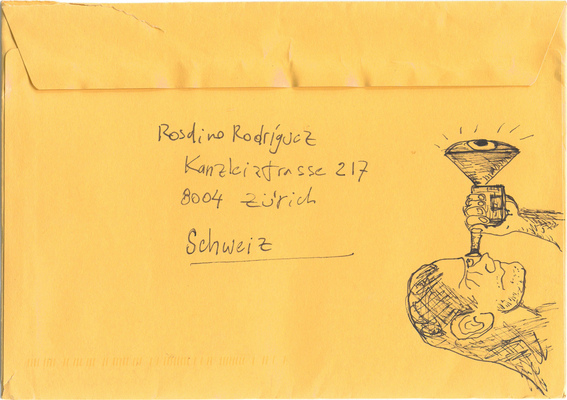 Rosdino Rodríguez
Kanzleistrasse 217
8004 Zürich
Schweiz